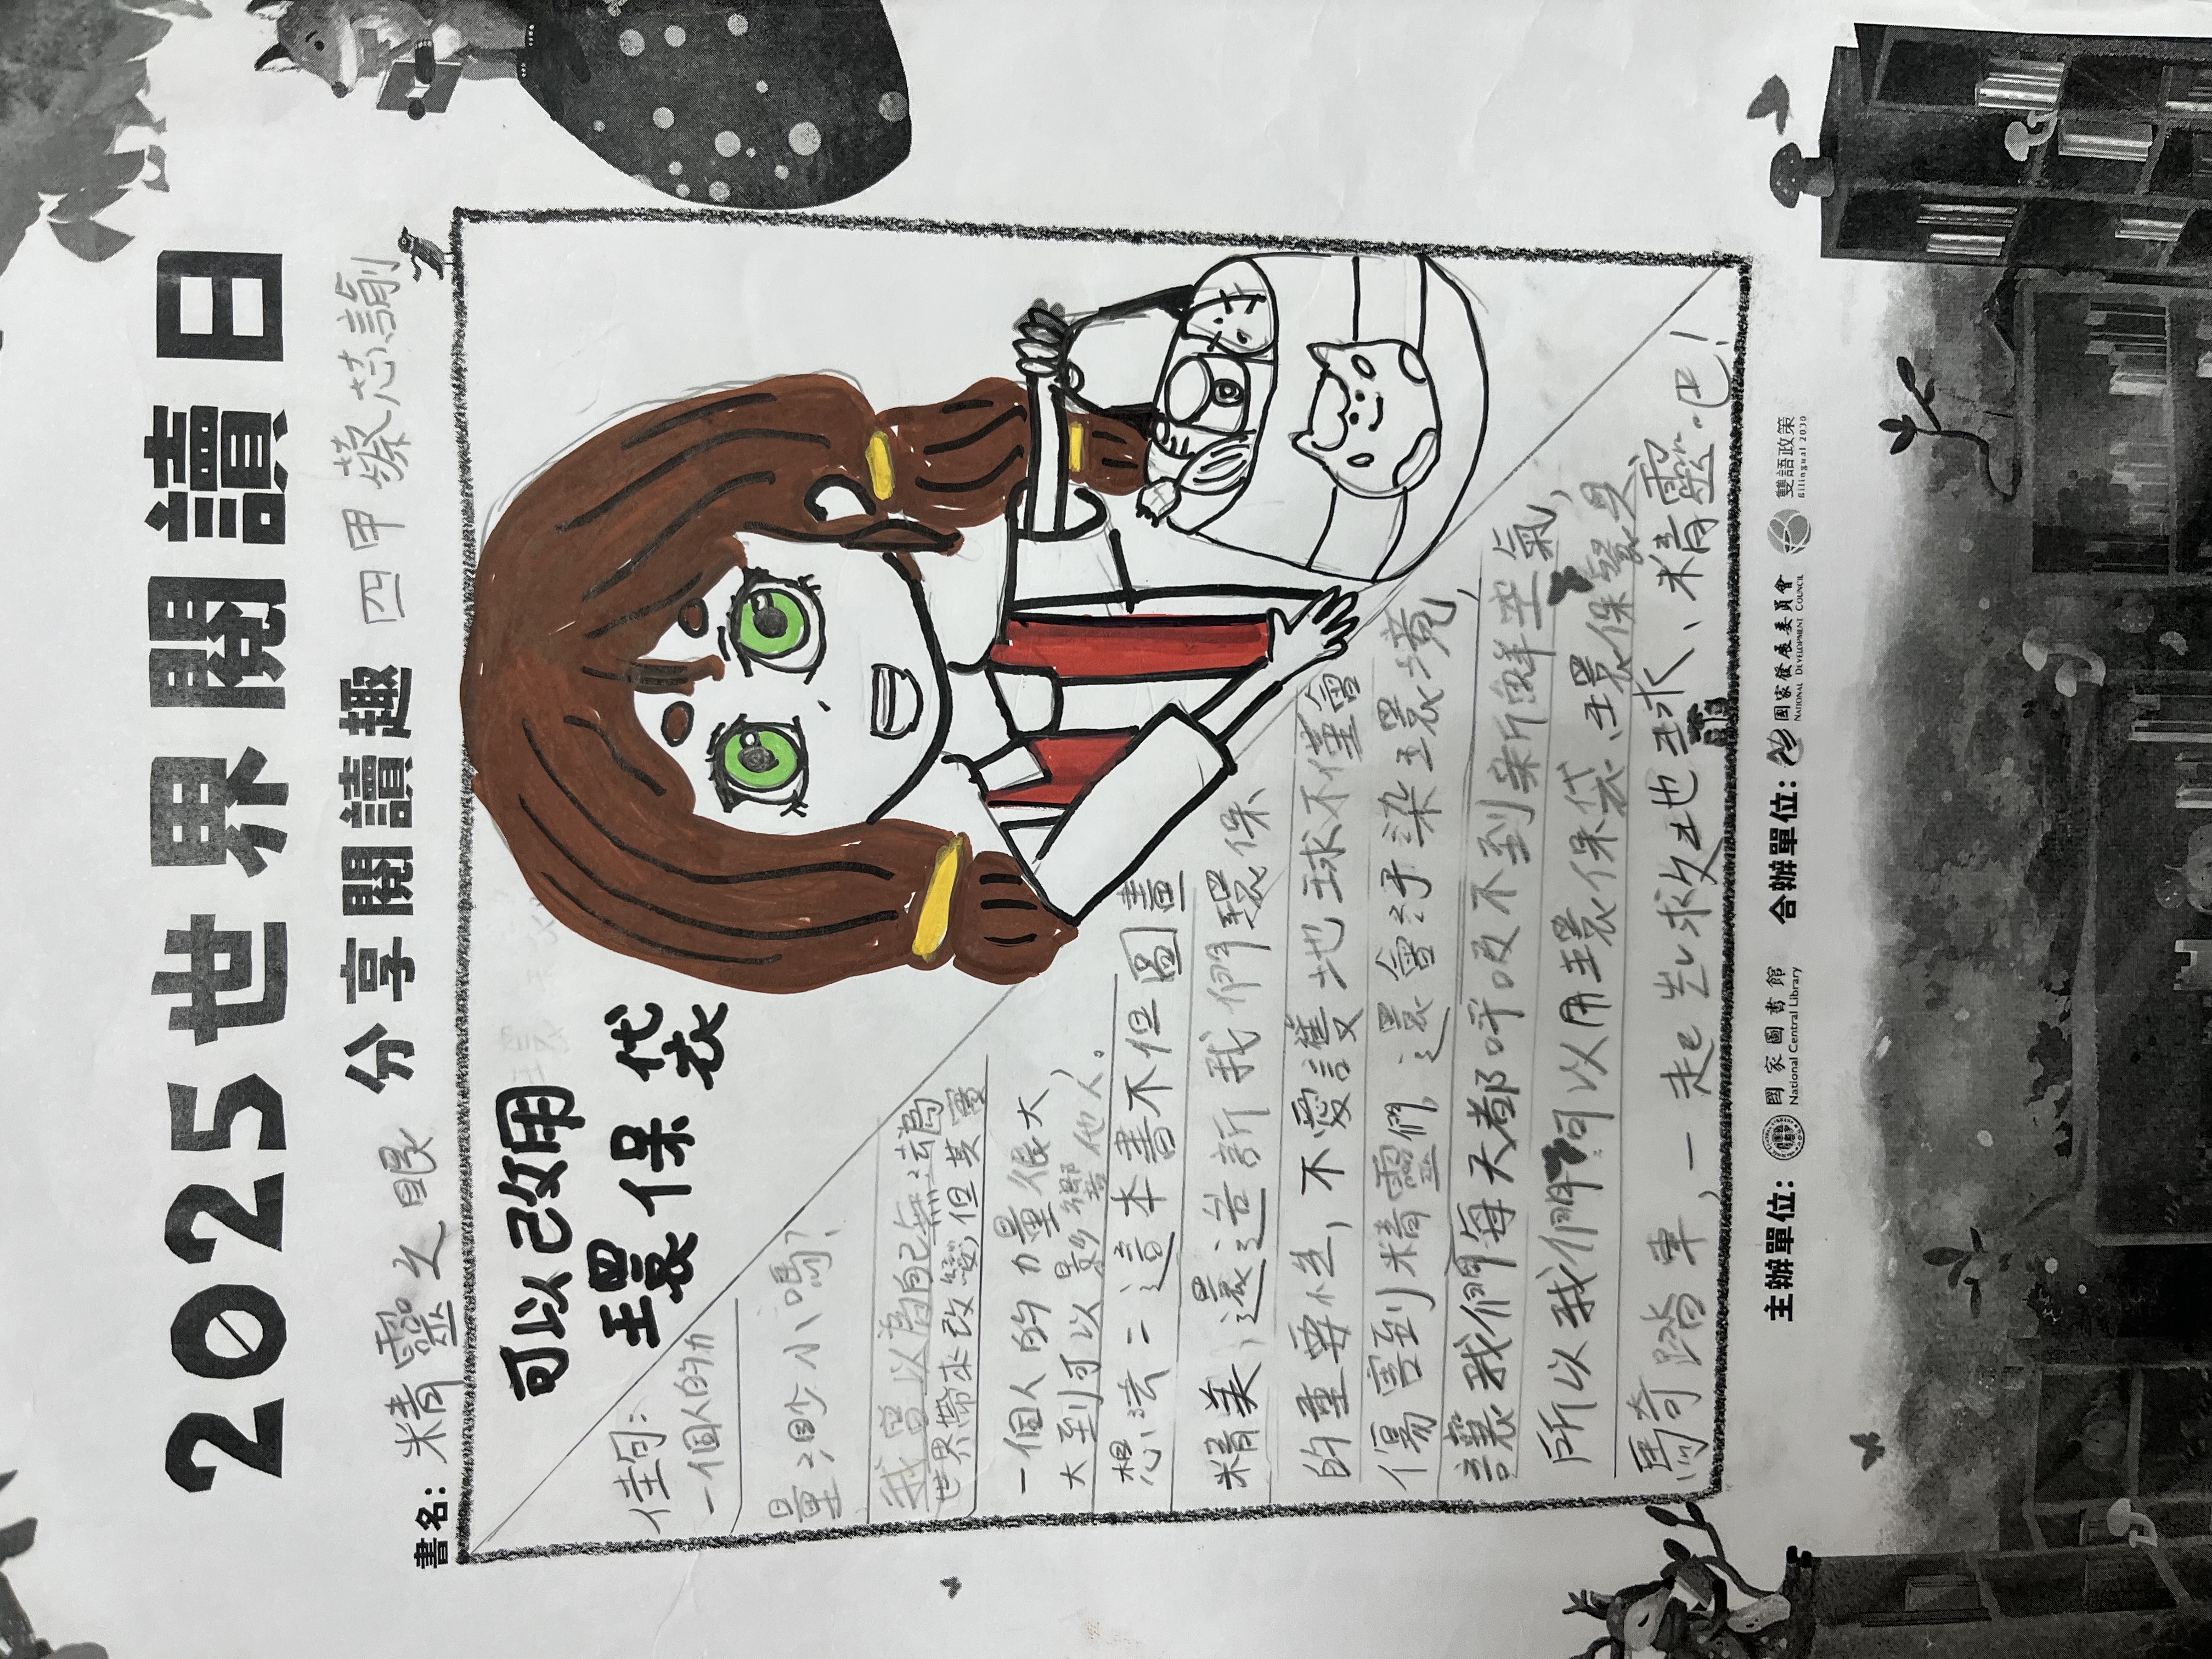 2025世界閱讀日
分享閱讀趣 四甲 蔡芯諭
書名：精靈之眼
可以改用
環保 袋
佳句：
一個人的力
量渺小嗎？
我曾以為自己無法為
世界帶來改變，但其實
一個人的力量很大，
大到可以影響他人。
想法：這本書不但圖畫
精美，還告訴我們環保
的重要性，不愛護地球不僅會
傷害到精靈們，還會汙染環境，
讓我們每天都呼吸不到新鮮空氣，
所以我們可以用環保袋、環保餐具、
騎腳踏車，一起去救地球、精靈吧！
主辦單位： 國家圖書館 National Central Library 合辦單位： 國家發展委員會 NATIONAL DEVELOPMENT COUNCIL 雙語政策 Bilingual 2030